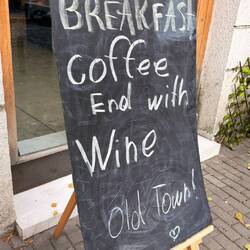 BREAKFAST
Coffee
End with
Wine
Old Town!